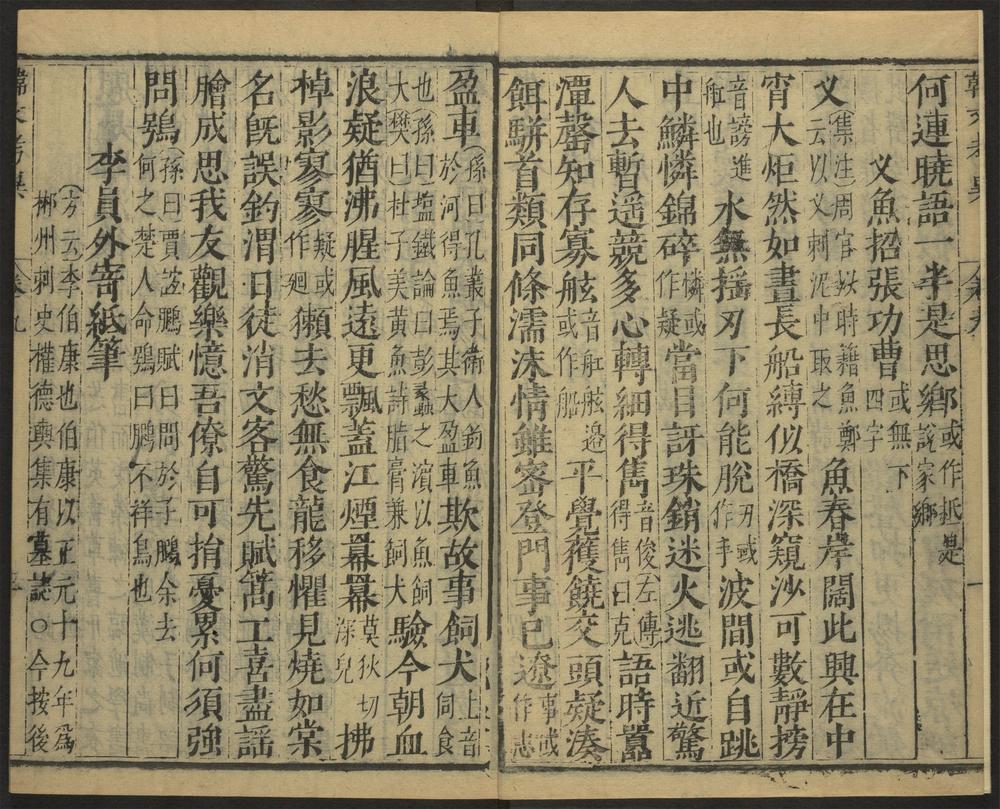 何連曉語一半是思鄉或作祗是說家鄉
叉魚招張功曹或無下四字
叉集注周官以時籍魚鄭云以叉刺泥中取之魚春岸闊此興在中
宵大炬然如晝長船縛似橋深窺沙可數靜搒
音謗進舡也水無揺刃下何能脫刃或作手波間或自跳
中鱗憐錦碎憐或作疑當目訝珠銷迷火逃翻近驚
人去暫遥競多心轉細得雋音俊左傳得雋曰克語時嚻
潭罄知存寡舷音舡舷邉或作船平覺獲饒交頭疑湊
餌駢首類同條濡沫情雖密登門事已遼事或作志
盈車孫曰孔叢子衛人釣魚於河得魚焉其大盈車欺故事飼犬上音飼食
也孫曰塩鐵論曰彭蠡之濵以魚飼犬樊曰杜子美黃魚詩脂膏兼飼犬驗今朝血
浪疑猶沸腥風遠更飄蓋江煙羃羃莫狄切深皃拂
棹影寥寥疑或作廻獺去愁無食龍移懼見燒如棠
名旣誤釣渭日徒消文客驚先賦篙工喜盡謡
膾成思我友觀樂憶吾僚自可捐憂累何須強
問鴞孫曰賈誼鵩賦曰問於子鵩余去何之楚人命鴞曰鵩不祥鳥也
李員外寄紙筆
方云李伯康也伯康以正元十九年爲郴州刺史權德輿集有墓誌○今按後